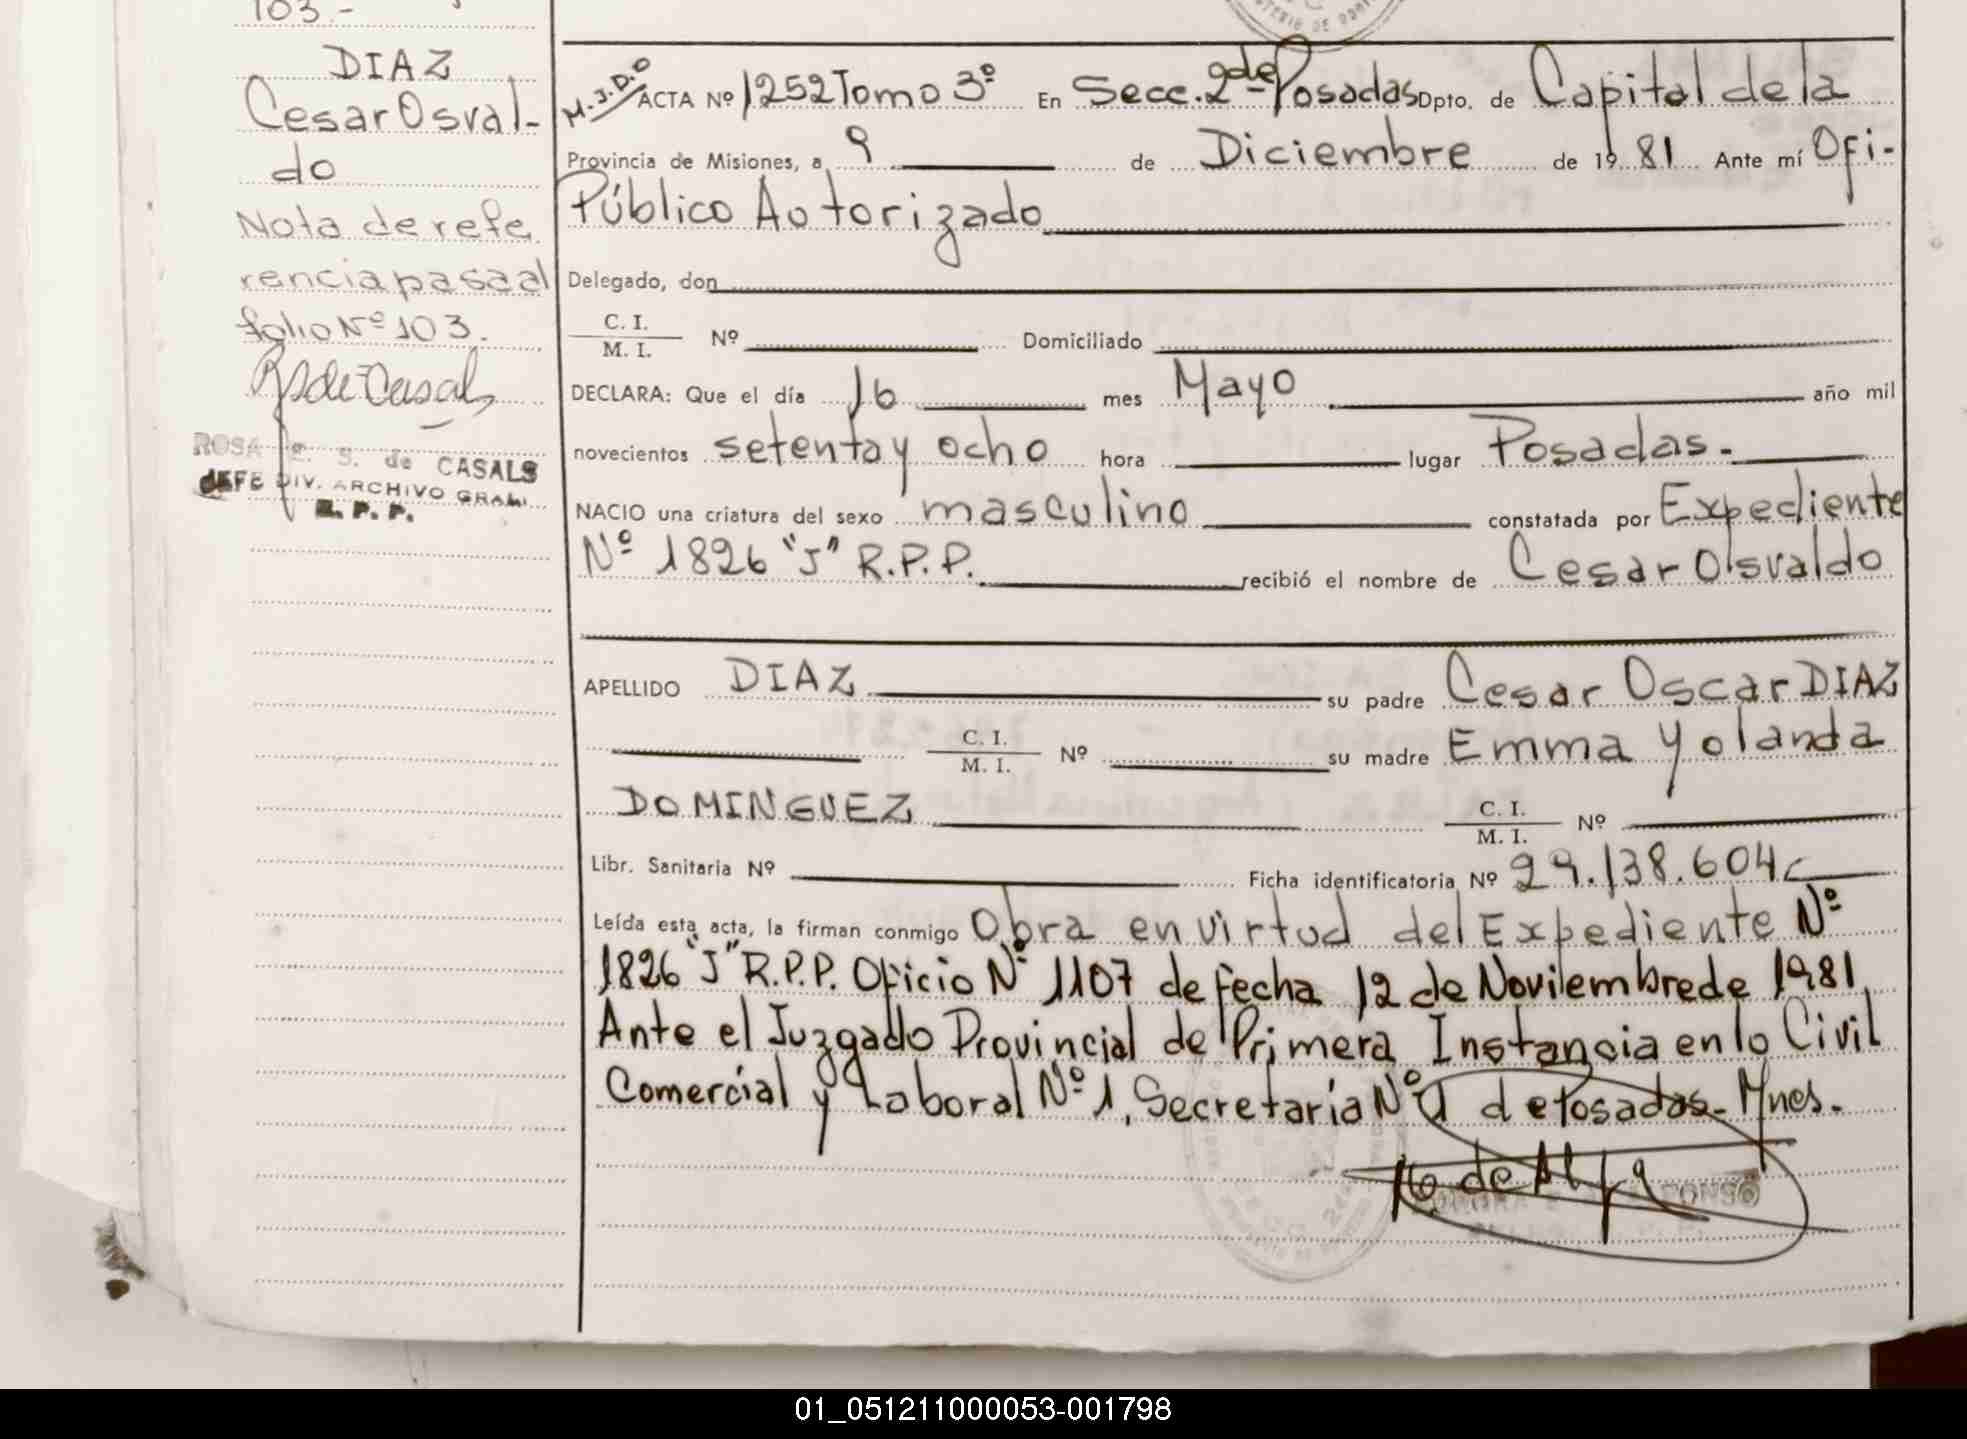 103.-
DIAZ
Cesar Osval-
do
Nota de refe
rencia pasa al
folio Nº 103.
RSdeCasals
ROSA E. S. de CASALS
JEFE DIV. ARCHIVO GRAL.
R. P. P.
M.J.D.O ACTA Nº 1252 Tomo 3º En Secc. 2da Posadas Dpto. de Capital de la
Provincia de Misiones, a 9 de Diciembre de 19 81 Ante mí Ofi-
Público Autorizado
Delegado, don
C. I.
M. I. Nº Domiciliado
DECLARA: Que el día 16 mes Mayo año mil
novecientos setenta y ocho hora lugar Posadas.-
NACIO una criatura del sexo masculino constatada por Expediente
Nº 1826 "J" R.P.P. recibió el nombre de Cesar Osvaldo
APELLIDO DIAZ su padre Cesar Oscar DIAZ
C. I.
M. I. Nº su madre Emma Yolanda
DOMINGUEZ C. I.
M. I. Nº
Libr. Sanitaria Nº Ficha identificatoria Nº 29.138.604
Leída esta acta, la firman conmigo Obra en virtud del Expediente Nº
1826 "J" R.P.P. Oficio Nº 1107 de fecha 12 de Noviembre de 1981
Ante el Juzgado Provincial de Primera Instancia en lo Civil
Comercial y Laboral Nº 1, Secretaria Nº 1 de Posadas- Mnes.-
01_051211000053-001798